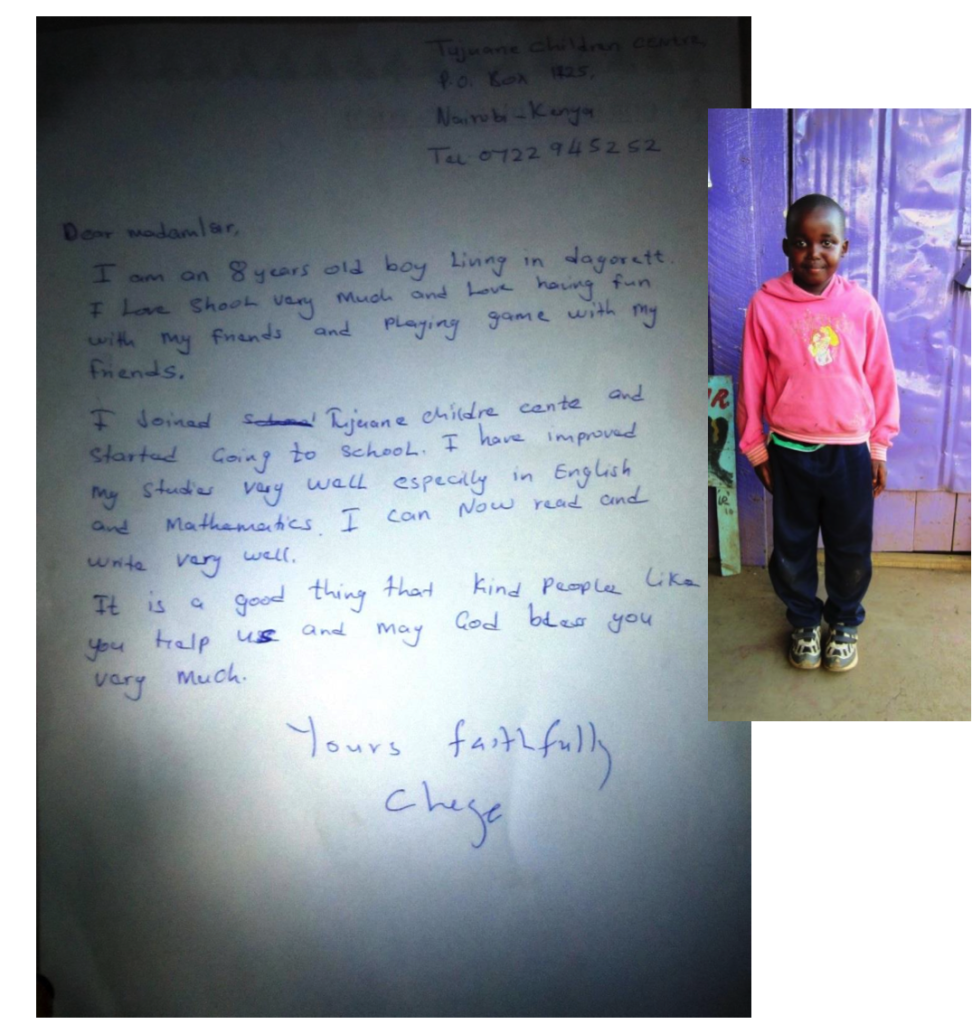 Tujuane children centre,
P.O. Box 1425,
Nairobi - Kenya
Tel 0722 945252
Dear madam/sir,
I am an 8 years old boy Living in dagorett.
I Love Shool very Much and Love having fun
with my friends and playing game with my
friends.
I Joined Tujuane childre cente and
started Going to school. I have improved
my studies very well especilly in English
and Mathematics. I can Now read and
write very well.
It is a good thing that kind people Like
you Help us and may God bless you
very much.
Yours faithfully
Chege